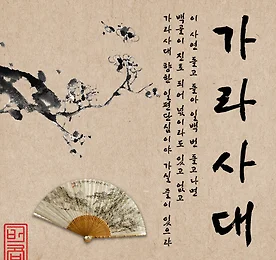 가라사대
이 사연 돌고 돌아 일백 번 돌고나면
백골이 진토 되어 넋이라도 있고 없고
가라사대 향한 일편단심이야 가실 줄이 있으랴